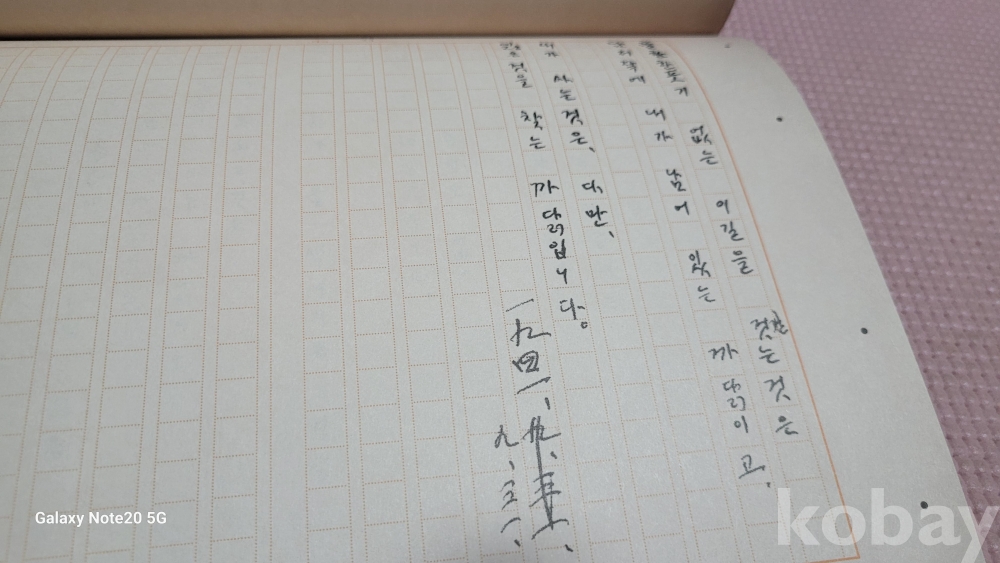 풀한포기 없는 이길을 걷는것은
담저쪽에 내가 남어 있는 까닭이고,
내가 사는것은, 다만,
잃은것을 찾는 까닭입니다。
一九四一、
九、三一、
Galaxy Note20 5G
kobay